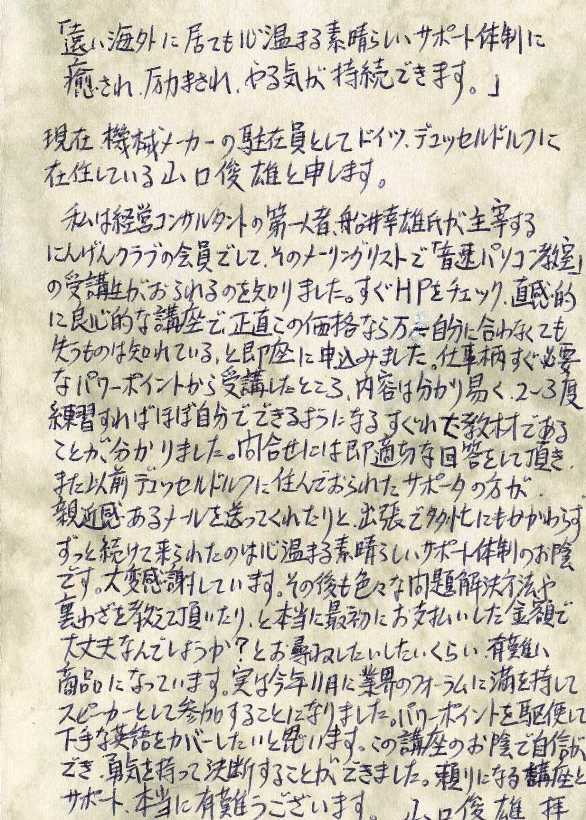 「遠い海外に居ても心温まる素晴らしいサポート体制に
癒され、励まされ、やる気が持続できます。」
現在、機械メーカーの駐在員としてドイツ、デュッセルドルフに
在住している山口俊雄と申します。
私は経営コンサルタントの第一人者、船井幸雄氏が主宰する
にんげんクラブの会員でして、そのメーリングリストで「音速パソコン教室」
の受講生がおられるのを知りました。すぐHPをチェック、直感的
に良心的な講座で、正直この価格なら万一自分に合わなくても
失うものは知れている、と即座に申込みました。仕事柄すぐ必要
なパワーポイントから受講したところ、内容は分かり易く、2~3度
練習すればほぼ自分でできるようになるすぐれた教材である
ことが分かりました。問合せには即適切な回答をして頂き、
また以前デュッセルドルフに住んでおられたサポータの方が、
親近感あるメールを送ってくれたりと、出張で多忙にもかかわらず
ずっと続けて来られたのは心温まる素晴らしいサポート体制のお陰
です。大変感謝しています。その後も色々な問題解決方法や
裏わざを教えて頂いたり、と本当に最初にお支払いした金額で
大丈夫なんでしょうか?とお尋ねしたいしたいくらい、有難い
商品になっています。実は今年11月に業界のフォーラムに満を持して
スピーカーとして参加することになりました。パワーポイントを駆使して
下手な英語をカバーしたいと思います。この講座のお陰で自信が
でき、勇気を持って決断することができました。頼りになる講座と
サポート、本当に有難うございます。 山口俊雄 拝